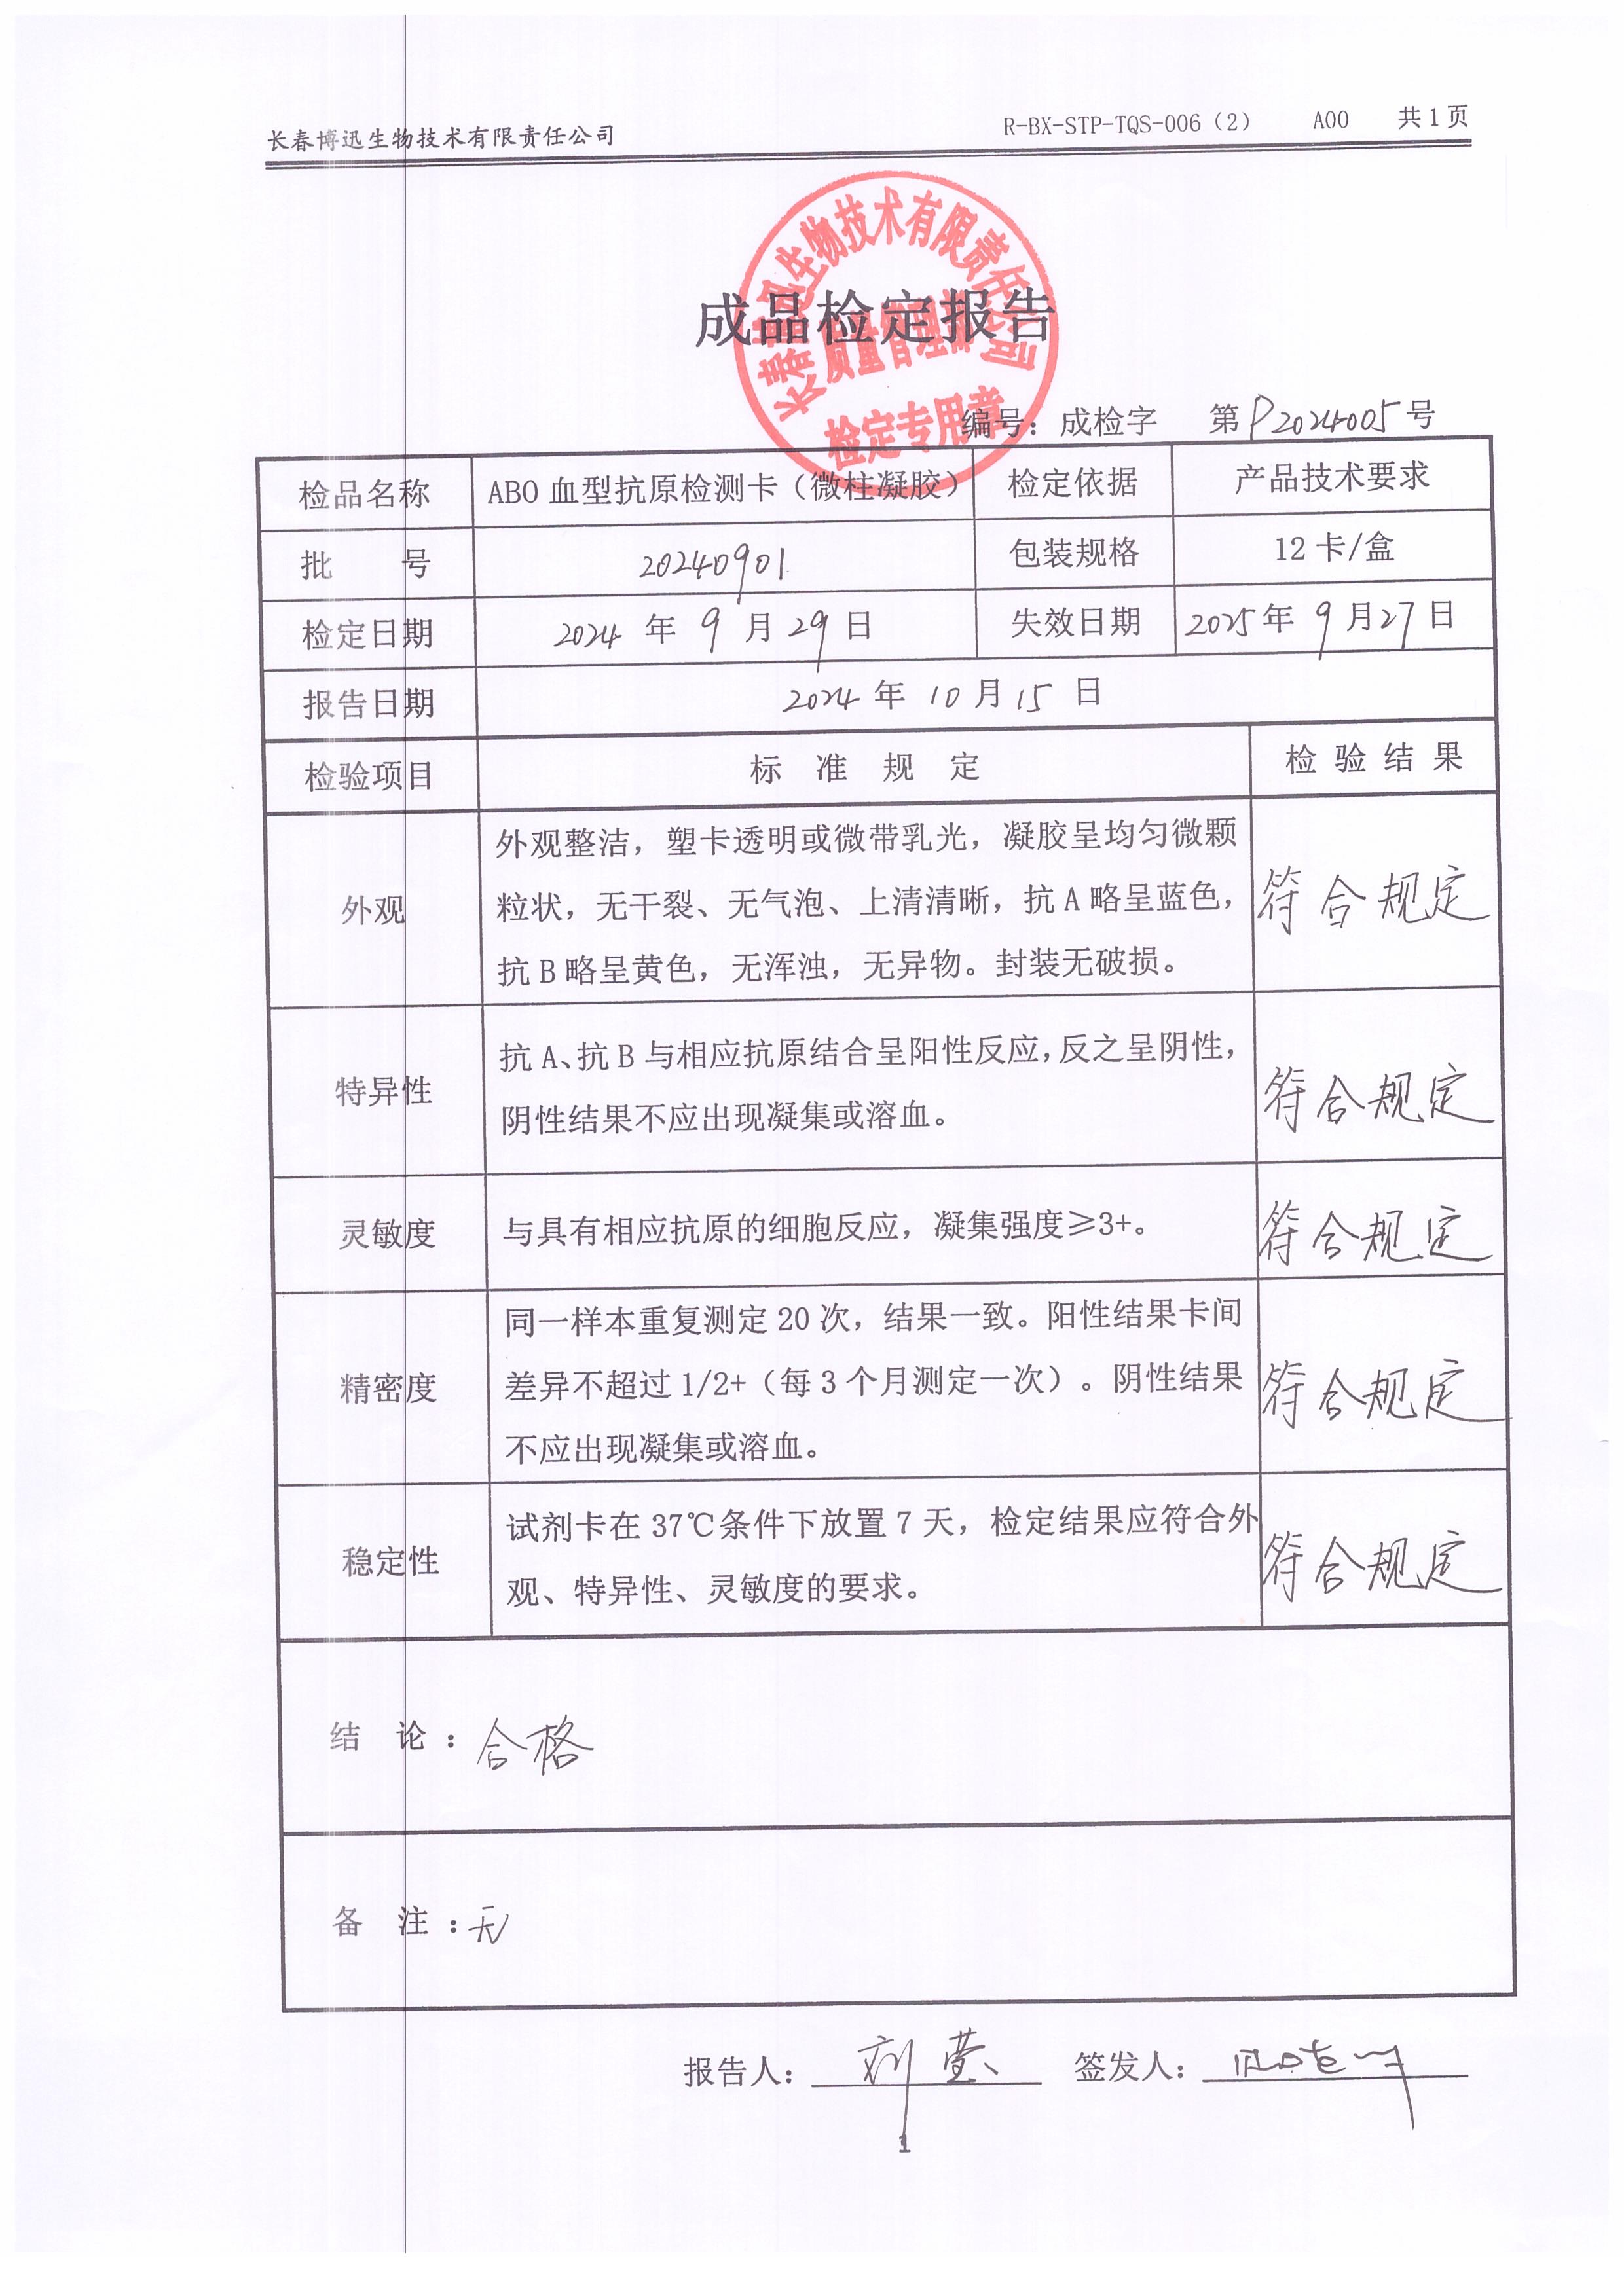 长春博迅生物技术有限责任公司 R-BX-STP-TQS-006（2） A00 共1页
长春博迅生物技术有限责任公司
质量管理部
检定专用章
成品检定报告
编号：成检字 第P2024005号
检品名称 ABO血型抗原检测卡（微柱凝胶） 检定依据 产品技术要求
批 号 20240901 包装规格 12卡/盒
检定日期 2024年9月29日 失效日期 2025年9月27日
报告日期 2024年10月15日
检验项目 标准规定 检验结果
外观整洁，塑卡透明或微带乳光，凝胶呈均匀微颗
外观 粒状，无干裂、无气泡、上清清晰，抗A略呈蓝色， 符合规定
抗B略呈黄色，无浑浊，无异物。封装无破损。
特异性 抗A、抗B与相应抗原结合呈阳性反应，反之呈阴性， 符合规定
阴性结果不应出现凝集或溶血。
灵敏度 与具有相应抗原的细胞反应，凝集强度≥3+。 符合规定
同一样本重复测定20次，结果一致。阳性结果卡间
精密度 差异不超过1/2+（每3个月测定一次）。阴性结果 符合规定
不应出现凝集或溶血。
稳定性 试剂卡在37℃条件下放置7天，检定结果应符合外 符合规定
观、特异性、灵敏度的要求。
结 论：合格
备 注：无
报告人：刘莹 签发人：
1